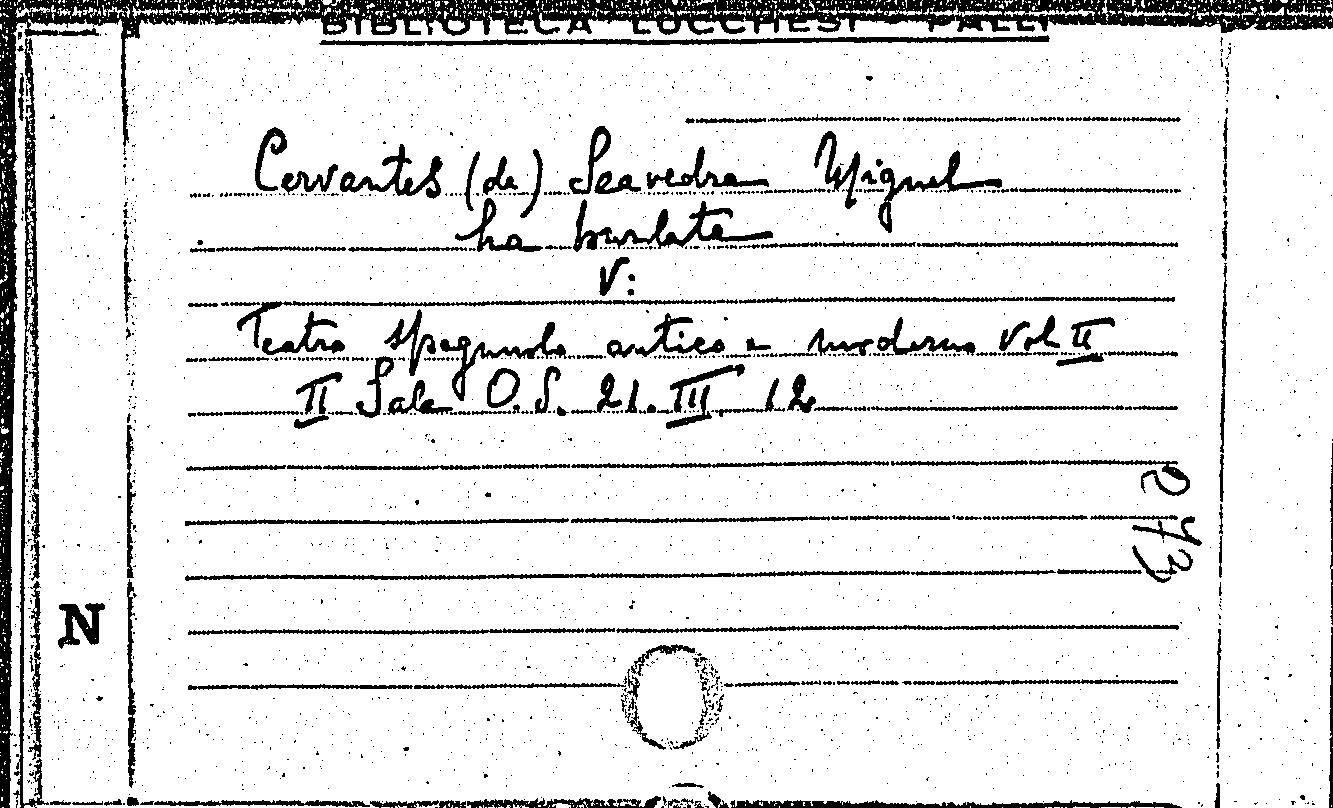 BIBLIOTECA LUCCHESI - PALLI
Cervantes (de) Seavedra Miguel
ha burlata
V:
Teatro spagnuolo antico e moderno Vol II
II Sala O.S. 21. III. 12
273
N